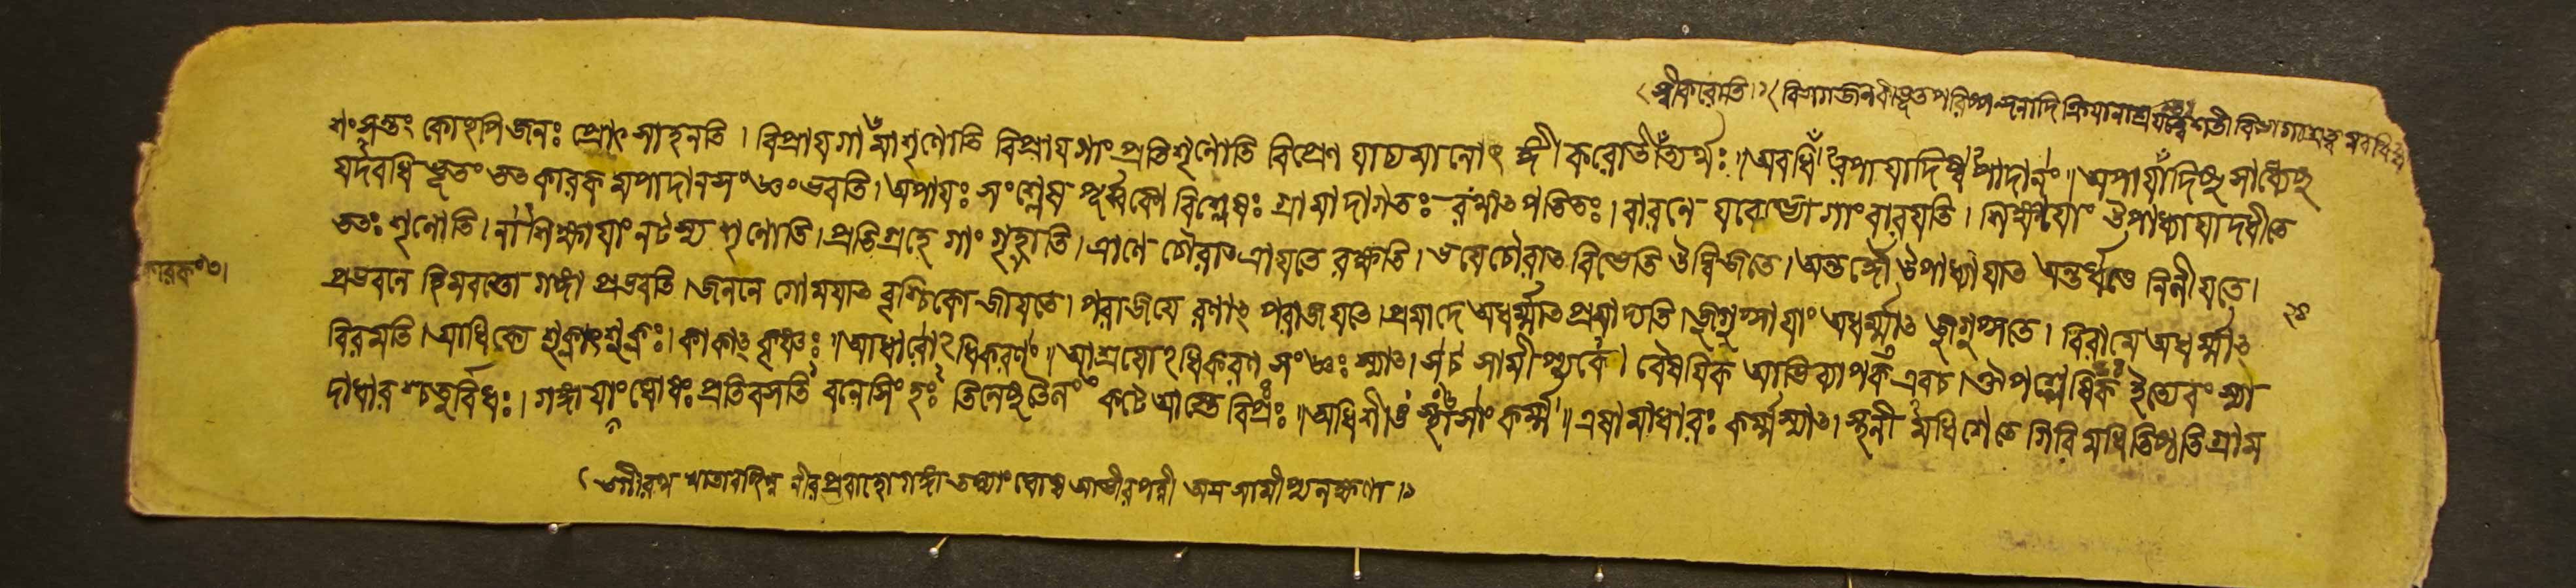 স্বীকরোতি।
শংসন্তং কোঽপি জনঃ প্রোৎসাহনতি। বিপ্রায় গামাশৃণোতি বিপ্রায় গাং প্রতিশৃণোতি বিপ্রেণ যাচ্যমানোঽঙ্গীকরোতীত্যর্থঃ॥ অবধিরপায়াদিষ্বপাদানং॥ অপায়াদিষু সাধ্যেষু
যদবধিভূতং তৎ কারকমপাদানসংজ্ঞং ভবতি। অপায়ঃ সংশ্লেষপূর্ব্বকো বিশ্লেষঃ গ্রামাদাগতঃ পতিতঃ। বারনে যবেভ্যো গাং বারয়তি। শিক্ষায়াং উপাধ্যায়াদধীতে
শৃনোতি। নাশিক্ষায়াং নটস্য শৃণোতি। প্রতিগ্রহে গাং গৃহ্ণাতি। ত্রাণে চৌরাৎ ত্রায়তে রক্ষতি। ভয়ে চৌরাৎ বিভেতি উদ্বিজতে। অন্তর্দ্ধৌ উপাধ্যায়াৎ অন্তর্ধত্তে নিলীয়তে।
কারকং
প্রভবনে হিমবতো গঙ্গা প্রভবতি। জননে গোময়াৎ বৃশ্চিকো জায়তে। পরাজয়ে রণাৎ পরাজয়তে। প্রমাদে অধর্ম্মাৎ প্রমাদ্যতি। জুগুপ্সায়াং অধর্ম্মাৎ জুগুপ্সতে। বিরামে অধর্ম্মাৎ
বিরমতি। আধিক্যে শুক্লাৎ শুক্লঃ। কাকাৎ কৃষ্ণঃ॥ আধারোঽধিকরণং॥ আশ্রয়োঽধিকরণসংজ্ঞঃ স্যাৎ। স চ সামীপ্যকং বৈষয়িক আভিব্যাপক এব চ। ঔপশ্লেষিক ইত্যেবং স্যা
দাধারশ্চতুর্বিধঃ। গঙ্গায়াং ঘোষঃ প্রতিবসতি বনে সিংহঃ তিলেষু তৈলং কটে আস্তে বিপ্রঃ॥ অধিশীঙ্স্থাসাং কর্ম্ম॥ এষামাধারঃ কর্ম্ম স্যাৎ। স্থলীমধিশেতে গিরিমধিতিষ্ঠতি গ্রাম
ভগীরথ খাতাবচ্ছিন্ন নীরপ্রবাহো গঙ্গা তস্যাং ঘোষ আভীরপল্লী অত্র সামীপ্য লক্ষণা।